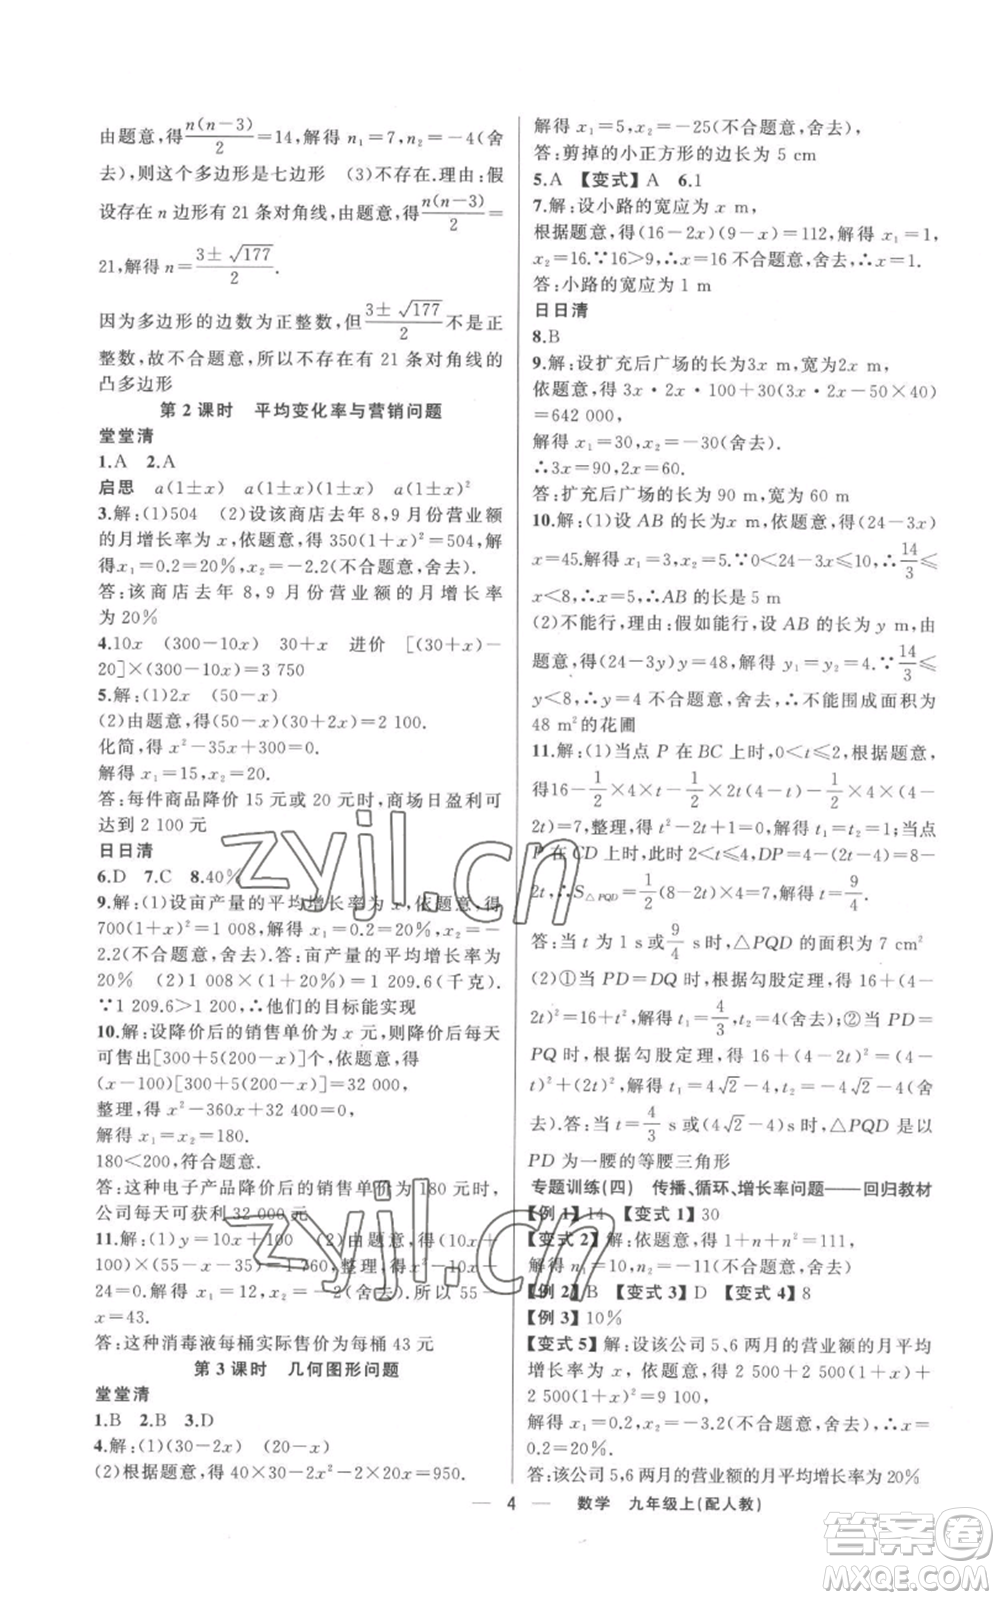 由题意,得n(n−3)/2=14,解得 n₁=7,n₂=−4(舍
去),则这个多边形是七边形 (3)不存在.理由:假
设存在 n 边形有 21 条对角线,由题意,得n(n−3)/2=
21,解得 n=(3±√177)/2.
因为多边形的边数为正整数,但(3±√177)/2不是正
整数,故不合题意,所以不存在有 21 条对角线的
凸多边形
第 2 课时 平均变化率与营销问题
堂堂清
1.A 2.A
启思 a(1±x) a(1±x)(1±x) a(1±x)²
3.解:(1)504 (2)设该商店去年 8,9 月份营业额
的月增长率为 x,依题意,得 350(1+x)²=504,解
得x₁=0.2=20%,x₂=−2.2(不合题意,舍去).
答:该商店去年 8,9 月份营业额的月增长率
为 20%
4.10x (300−10x) 30+x 进价 [(30+x)−
20]×(300−10x)=3 750
5.解:(1)2x (50−x)
(2)由题意,得(50−x)(30+2x)=2 100.
化简,得 x²−35x+300=0.
解得 x₁=15,x₂=20.
答:每件商品降价 15 元或 20 元时,商场日盈利可
达到 2 100 元
日日清
6.D 7.C 8.40%
9.解:(1)设亩产量的平均增长率为 x,依题意,得
700(1+x)²=1 008,解得 x₁=0.2=20%,x₂=−
2.2(不合题意,舍去).答:亩产量的平均增长率为
20% (2)1 008×(1+20%)=1 209.6(千克).
∵1 209.6>1 200,∴他们的目标能实现
10.解:设降价后的销售单价为 x 元,则降价后每天
可售出[300+5(200−x)]个,依题意,得
(x−100)[300+5(200−x)]=32 000,
整理,得 x²−360x+32 400=0,
解得 x₁=x₂=180.
180<200,符合题意.
答:这种电子产品降价后的销售单价为 180 元时,
公司每天可获利 32 000 元
11.解:(1)y=10x+100 (2)由题意,得(10x+
100)×(55−x−35)=1 760,整理,得 x²−10x−
24=0.解得 x₁=12,x₂=−2(舍去).所以 55−
x=43.
答:这种消毒液每桶实际售价为每桶 43 元
第 3 课时 几何图形问题
堂堂清
1.B 2.B 3.D
4.解:(1)(30−2x) (20−x)
(2)根据题意,得 40×30−2x²−20×2x=950.
解得 x₁=5,x₂=−25(不合题意,舍去),
答:剪掉的小正方形的边长为 5 cm
5.A 【变式】A 6.1
7.解:设小路的宽应为 x m,
根据题意,得(16−2x)(9−x)=112,解得 x₁=1,
x₂=16.∵16>9,∴x=16不合题意,舍去,∴x=1.
答:小路的宽应为 1 m
日日清
8.B
9.解:设扩充后广场的长为3x m,宽为2x m,
依题意,得 3x·2x·100+30(3x·2x−50×40)
=642 000,
解得 x₁=30,x₂=−30(舍去).
∴3x=90,2x=60.
答:扩充后广场的长为 90 m,宽为 60 m
10.解:(1)设 AB 的长为x m,依题意,得(24−3x)
x=45.解得 x₁=3,x₂=5.∵0<24−3x≤10,∴14/3≤
x<8,∴x=5,∴AB 的长是 5 m
(2)不能行,理由:假如能行,设 AB 的长为 y m,由
题意,得(24−3y)y=48,解得 y₁=y₂=4.∵14/3≤
y<8,∴y=4 不合题意,舍去,∴不能围成面积为
48 m²的花圃
11.解:(1)当点 P 在 BC 上时,0<t≤2,根据题意,
得16−1/2×4×t−1/2×2t(4−t)−1/2×4×(4−
2t)=7,整理,得 t²−2t+1=0,解得 t₁=t₂=1;当点
P 在 CD 上时,此时 2<t≤4,DP=4−(2t−4)=8−
2t,∴S△PQD=1/2(8−2t)×4=7,解得 t=9/4.
答:当 t 为 1 s或9/4 s时,△PQD 的面积为 7 cm²
(2)①当 PD=DQ 时,根据勾股定理,得 16+(4−
2t)²=16+t²,解得 t₁=4/3,t₂=4(舍去);②当 PD=
PQ 时,根据勾股定理,得 16+(4−2t)²=(4−
t)²+(2t)²,解得 t₁=4√2−4,t₂=−4√2−4(舍
去).答:当 t=4/3 s或(4√2−4)s时,△PQD 是以
PD 为一腰的等腰三角形
专题训练(四) 传播、循环、增长率问题——回归教材
【例 1】14 【变式 1】30
【变式 2】解:依题意,得 1+n+n²=111,
解得 n₁=10,n₂=−11(不合题意,舍去).
【例 2】B 【变式 3】D 【变式 4】8
【例 3】10%
【变式 5】解:设该公司 5、6 两月的营业额的月平均
增长率为 x,根据题意,得 2 500+2 500(1+x)+
2 500(1+x)²=9 100,
解得 x₁=0.2,x₂=−3.2(不合题意,舍去).∴x=
0.2=20%.
答:该公司5,6两月的营业额的月平均增长率为 20%
— 4 — 数学 九年级上(配人教)
zyjl.cn
zyjl.cn
答案圈
MXQE.COM